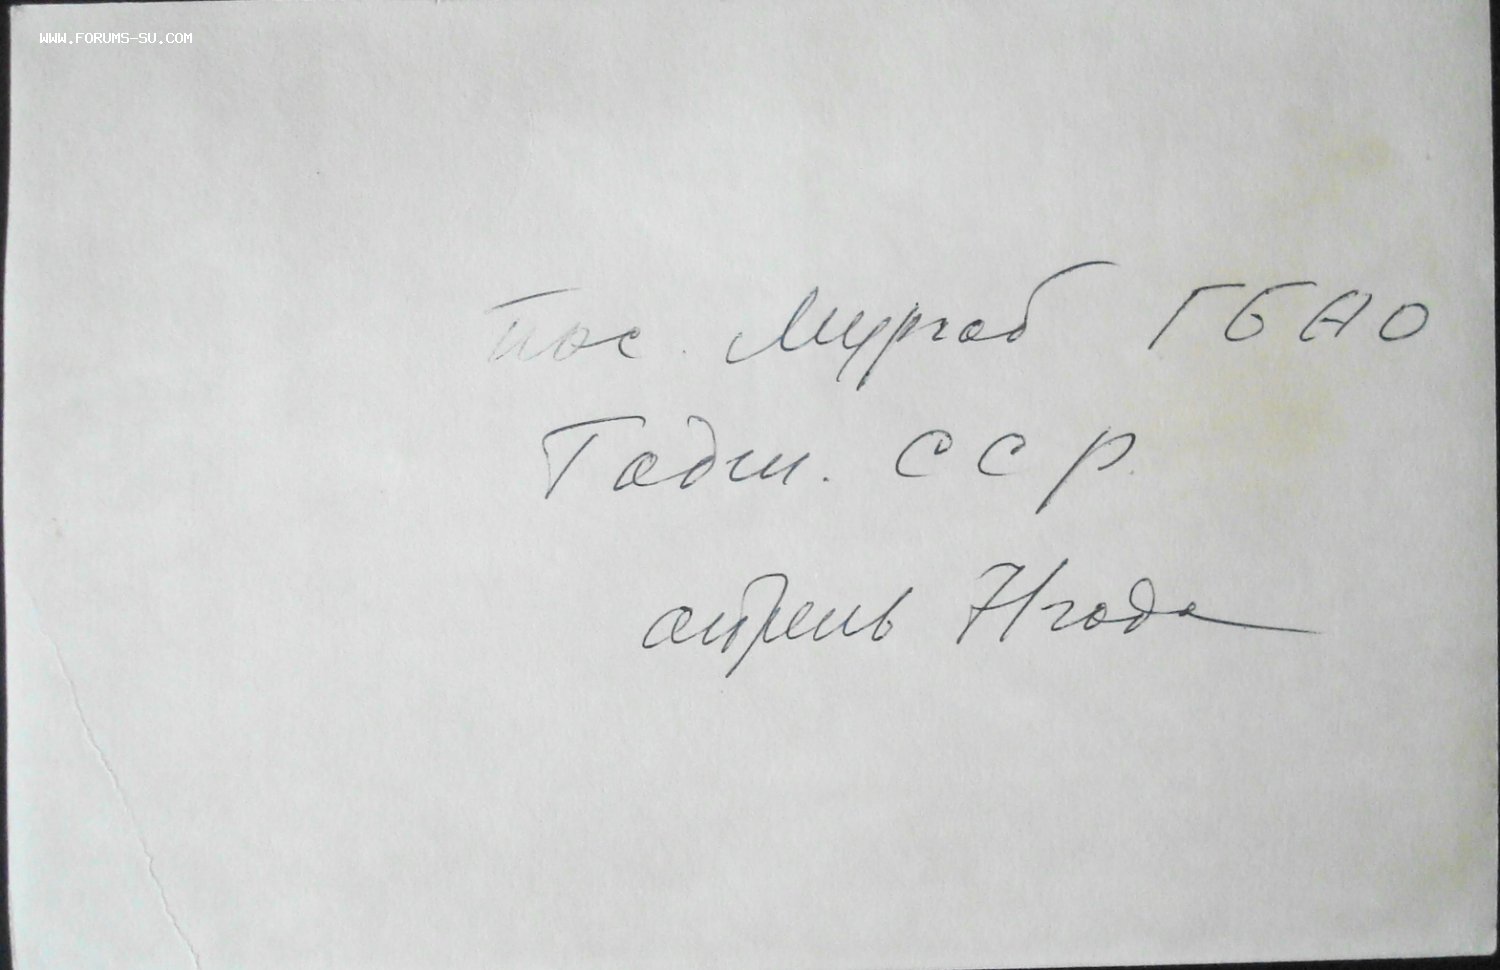 WWW.FORUMS-SU.COM
Пос. Мургаб ГБАО
Тадж. ССР
апрель 71 года